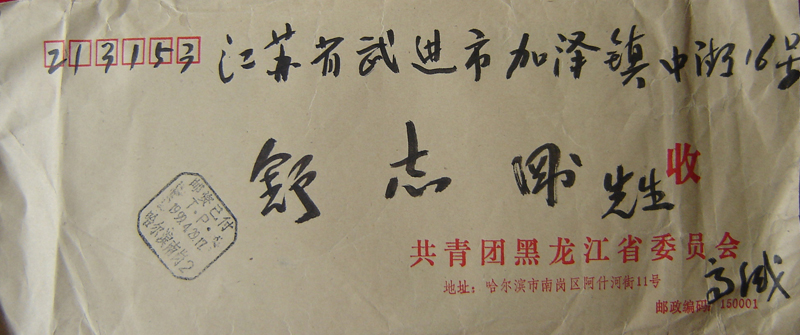 213153 江苏省武进市加泽镇中街16号
舒志刚先生 收
邮资已付
T.P.
1999.4.29.12
哈尔滨南岗2
共青团黑龙江省委员会
地址：哈尔滨市南岗区阿什河街11号
高诚
邮政编码：150001